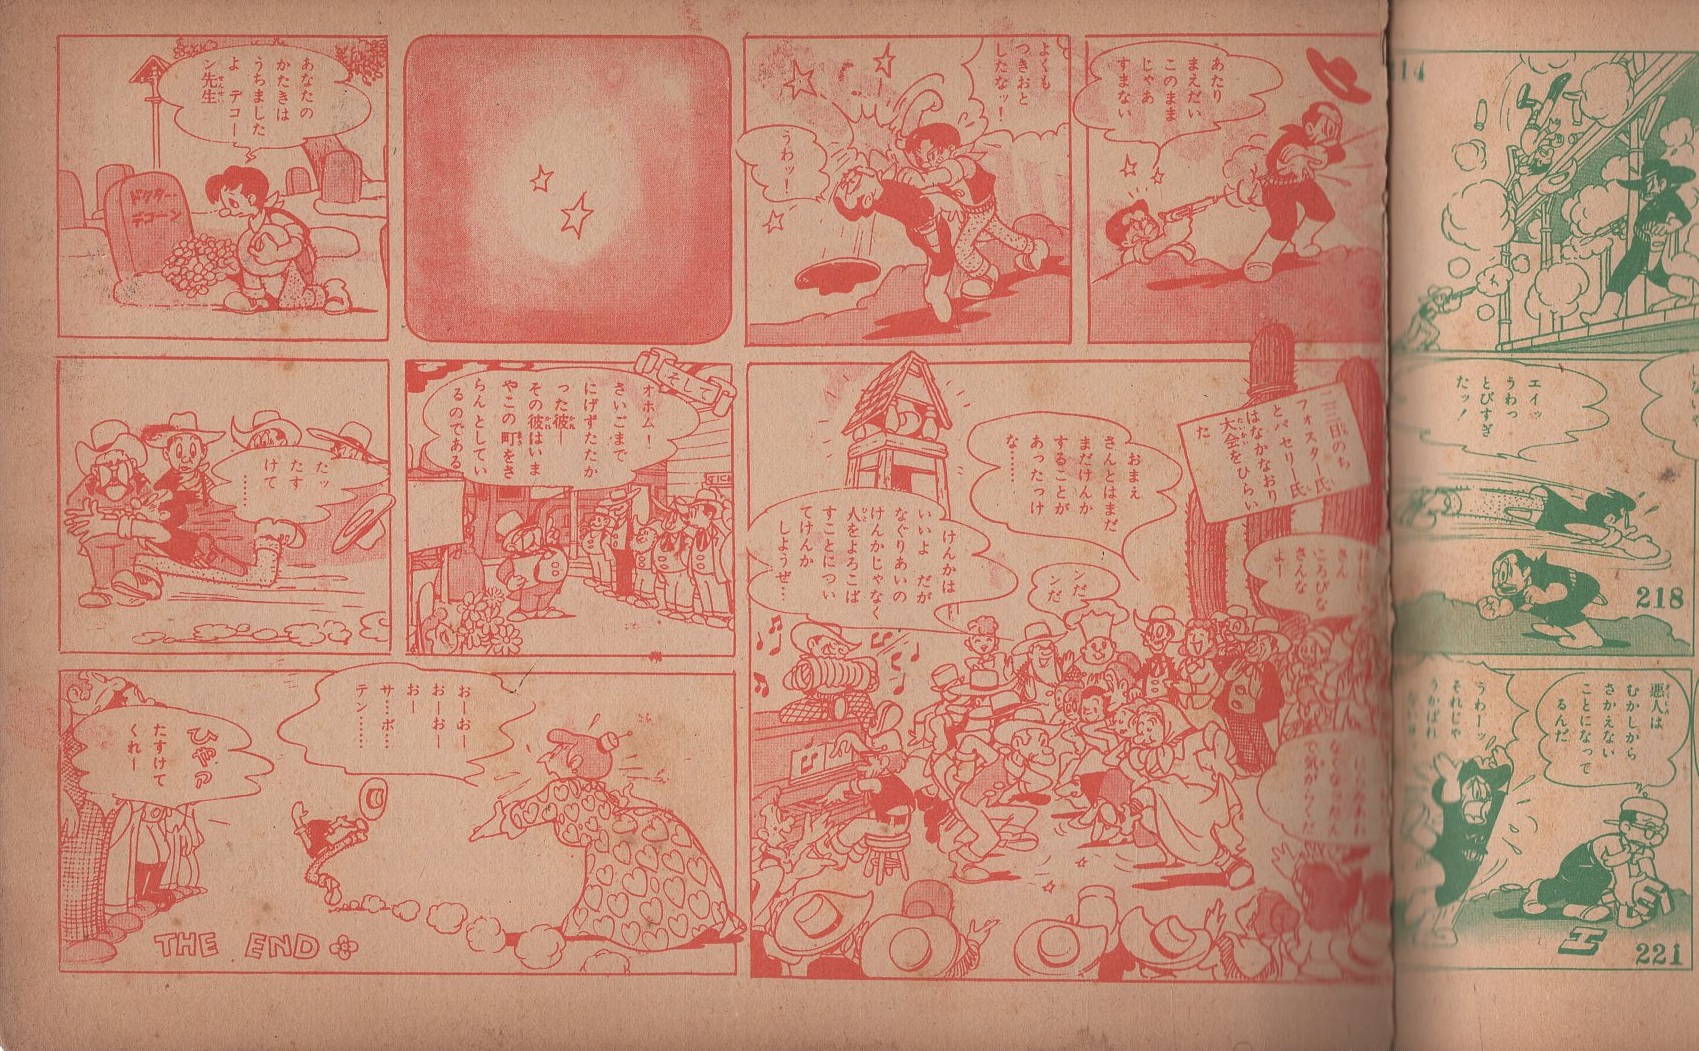 14
エイッ
うわっ
とびすぎ
たッ！
218
悪人は
むかしから
さかえない
ことになって
るんだ
うわーッ
それじゃ
エ
221
あたり
まえだい
このまま
じゃあ
すまない
よくも
つきおと
したなッ！
うわッ！
あなたの
かたきは
うちました
よ　デコー
ン先生
ドクター
デコーン
二三日のち
フォスター氏
とパセリー氏
はなかなおり
大会をひらい
た
おまえ
さんとはまだ
まだけんか
することが
あったっけ
な……
けんかは
いいよ　だが
なぐりあいの
けんかじゃなく
人をよろこば
すことについ
てけんか
しようぜ…
ンだ
ンだ
さん
ころびな
さんな
よー
そして
オホム！
さいごまで
にげずたたか
った彼―
その彼はいま
やこの町をさ
らんとしてい
るのである
たッ
たす
けて
……
おーおー
おーおー
おー
サ…ボ…
テン……
ひゃア
たすけて
くれー
THE END